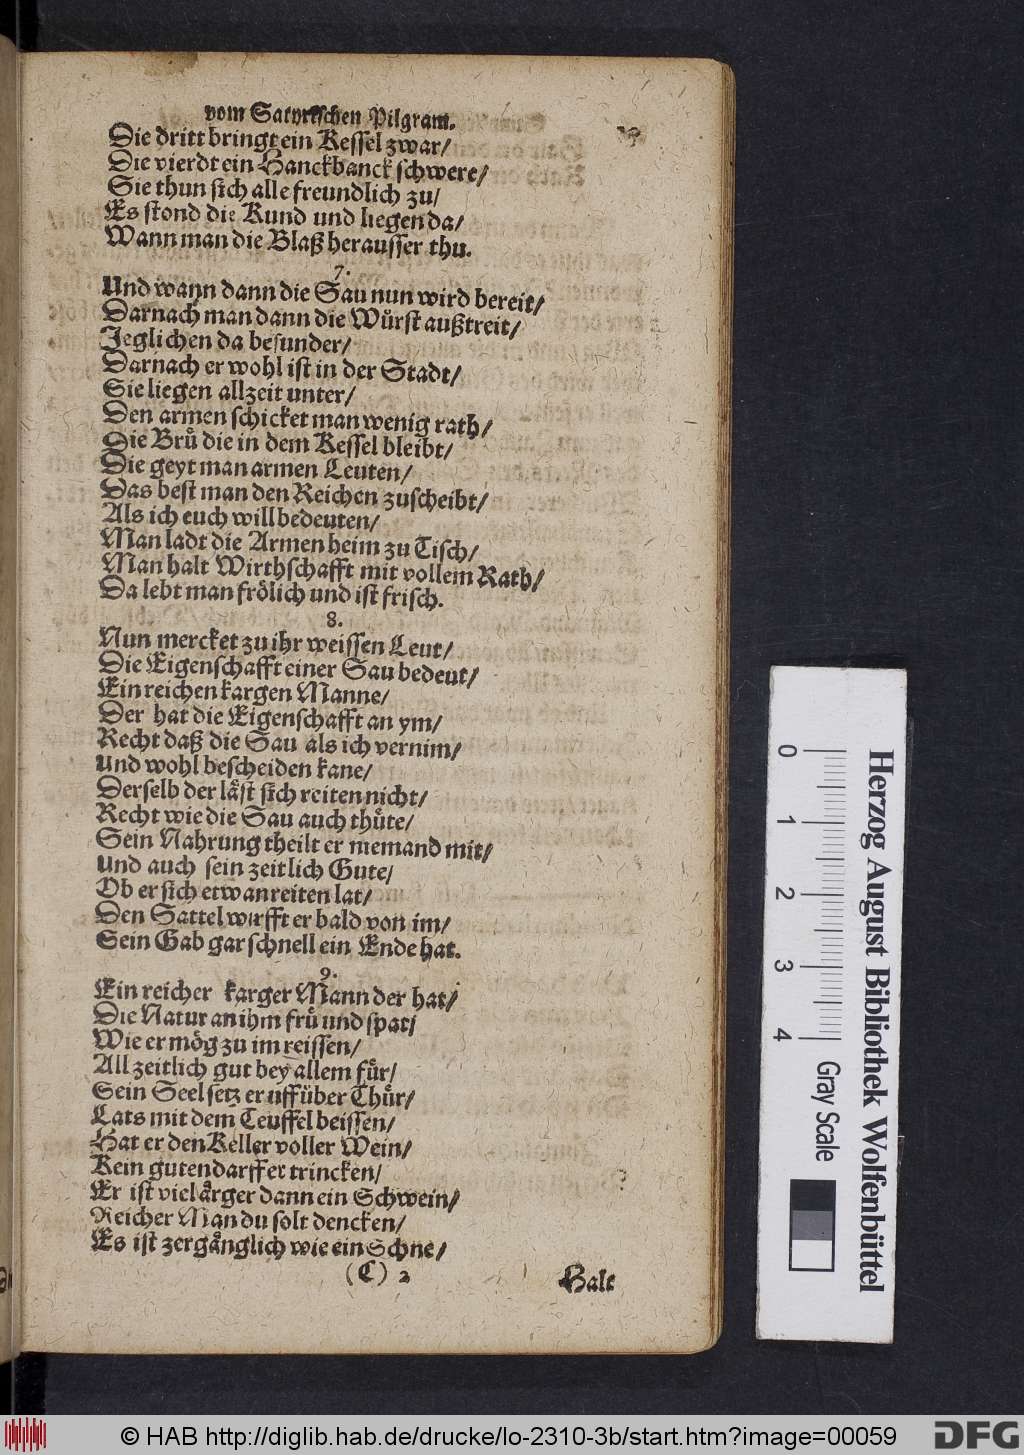 vom Satyrischen Pilgram.
Die dritt bringt ein Kessel zwar/
Die vierdt ein Hanckbanck schwere/
Sie thun sich alle freundlich zu/
Es stond die Kund und liegen da/
Wann man die Blaß herausser thu.
7.
Und wann dann die Sau nun wird bereit/
Darnach man dann die Würst außtreit/
Jeglichen da besunder/
Darnach er wohl ist in der Stadt/
Sie liegen allzeit unter/
Den armen schicket man wenig rath/
Die Brü die in dem Kessel bleibt/
Die geyt man armen Leuten/
Das best man den Reichen zuscheibt/
Als ich euch will bedeuten/
Man ladt die Armen heim zu Tisch/
Man halt Wirthschafft mit vollem Rath/
Da lebt man frölich und ist frisch.
8.
Nun mercket zu ihr weissen Leut/
Die Eigenschafft einer Sau bedeut/
Ein reichen kargen Manne/
Der hat die Eigenschafft an ym/
Recht daß die Sau als ich vernim/
Und wohl bescheiden kane/
Derselb der läst sich reiten nicht/
Recht wie die Sau auch thüte/
Sein Nahrung theilt er niemand mit/
Und auch sein zeitlich Gute/
Ob er sich etwan reiten lat/
Den Sattel wirfft er bald von im/
Sein Gab gar schnell ein Ende hat.
9.
Ein reicher karger Mann der hat/
Die Natur an ihm frü und spat/
Wie er mög zu im reissen/
All zeitlich gut bey allem für/
Sein Seel setz er uff über Thür/
Lats mit dem Teuffel beissen/
Hat er den Keller voller Wein/
Kein guten darff er trincken/
Er ist viel ärger dann ein Schwein/
Reicher Man du solt dencken/
Es ist zergänglich wie ein Schne/
(C) 2
Halt
0 1 2 3 4
Gray Scale
Herzog August Bibliothek Wolfenbüttel
© HAB http://diglib.hab.de/drucke/lo-2310-3b/start.htm?image=00059
DFG